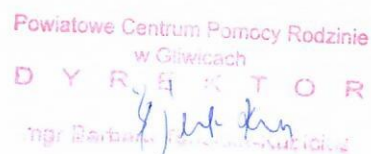 Powiatowe Centrum Pomocy Rodzinie
w Gliwicach
D Y R E K T O R
mgr Barbara